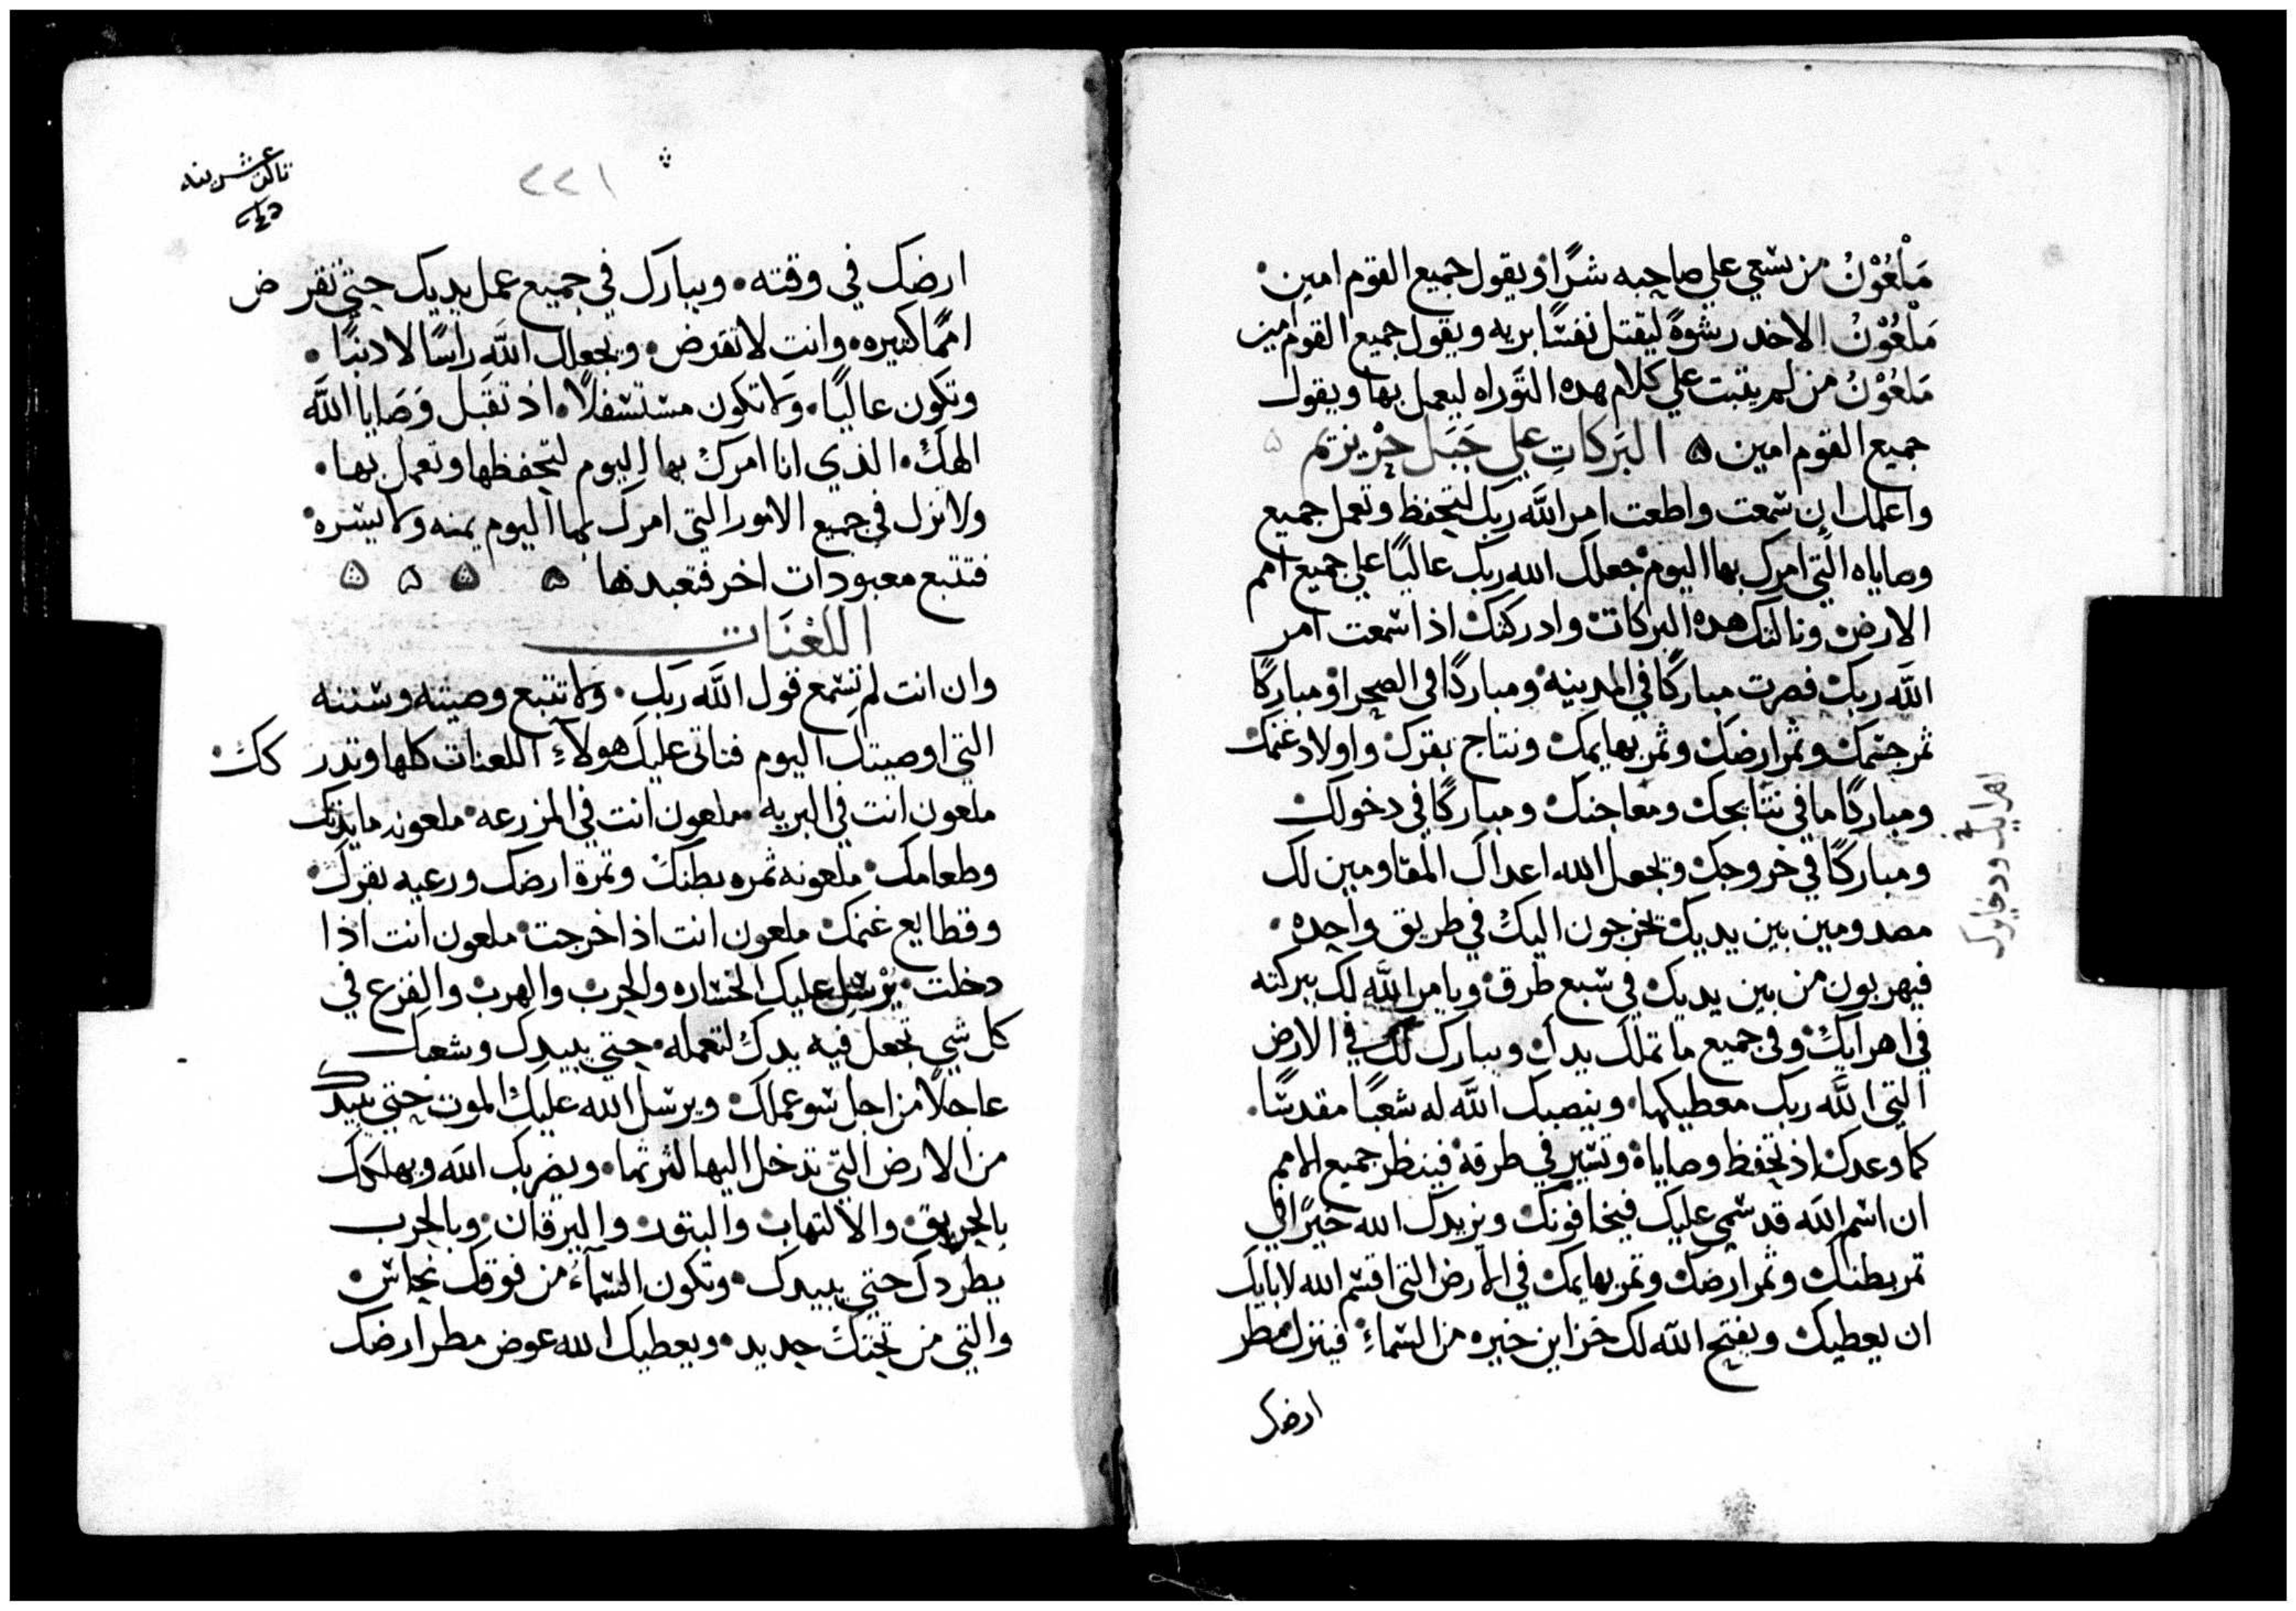 مَلْعُوْنُ من يسعي علي صاحبه شرًا ويقول جميع القوم امين
مَلْعُوْنُ الاخد رشوةً ليقتل نفسًا بريه ويقول جميع القوم امين
مَلعُوْنُ من لم يثبت علي كلام هده التوراه ليعمل بها ويقول
جميع القوم امين ۵ البَركاتِ علي جَبَل جْريزيم ۵
واعلمك ان سمعت واطعت امر اللَّه ربك لتحفظ وتعمل جميع
وصاياه التي امرك بها اليوم جعلك الله ربك عاليًا علي جميع امم
الارض ونالتك هده البركات وادركتك اذا سمعت امر
اللَّه ربك فصرت مباركًا في المدينه ومباركًا في الصحرا ومباركًا
ثمر جسمك وثمر ارضك وثمر بهايمك ونتاج بقرك واولاد غنمك
ومباركًا ما في نتايجك ومعاجنك ومباركًا في دخولك
ومباركًا في خروجك ويجعل الله اعداك المقاومين لك
مصدومين بين يديك يخرجون اليك في طريق واحده
فيهربون من بين يديك في سبع طرق ويامر اللَّه لك ببركته
في اهرايك وفي جميع ما تملك يداك ويبارك لك في الارض
التي اللَّه ربك معطيكها وينصبك اللَّه له شعبًا مقدسًا
كما وعدك اذ تحفظ وصاياه وتسير في طرقه فينظر جميع الامم
ان اسم اللَه قد سمي عليك فيخافونك ويزيدك الله خيرًا في
ثمر بطنك وثمر ارضك وثمر بهايمك في الارض التي اقسم الله لابايك
ان يعطيك ويفتح اللَه لك خزاين خيره من السماءِ فينزل مطر
ارضك
اهرايك
٢٢١
ارضك في وقته ويبارك في جميع عمل يديك حتي تقرض
اممًا كثيره وانت لا تقرض ويجعلك اللَّه راسًا لا دنبًا
وتكون عاليًا ولا تكون مستسفلًا اذ تقبل وَصَايا اللَّه
الهك الذي انا امرك بها اليوم لتحفظها وتعمل بها
ولا تزل في جميع الامور التي امرك بها اليوم يمنه ولا يسره
فتتبع معبودات اخر فتعبدها ۵ ۵ ۵ ۵
اللعْنَات
وان انت لم تسمع قول اللَّه ربك ولا تتبع وصيته وسننه
التي اوصيتك اليوم فتاتي عليك هولاءِ اللعنات كلها وتدركك
ملعون انت في البريه ملعون انت في المزرعه ملعونه مايدتك
وطعامك ملعونه ثمره بطنك وثمرة ارضك ورعيه بقرك
وقطايع غنمك ملعون انت اذا خرجت ملعون انت اذا
دخلت يُرسل عليك الخساره والجرب والهرب والفزع في
كل شي تجعل فيه يدك لتعمله حتي يبيدك وشعبك
عاجلًا من اجل سو عملك ويرسل الله عليك الموت حتي يبيدك
من الارض التي تدخل اليها لترثها ويضربك اللَه ويهلكك
بالحريق والالتهاب والبتور واليرقان وبالحرب
يطردك حتي يبيدك وتكون السَّمآءُ من فوقك نحاس
والتي من تحتك حديد ويعطيك الله عوض مطر ارضك